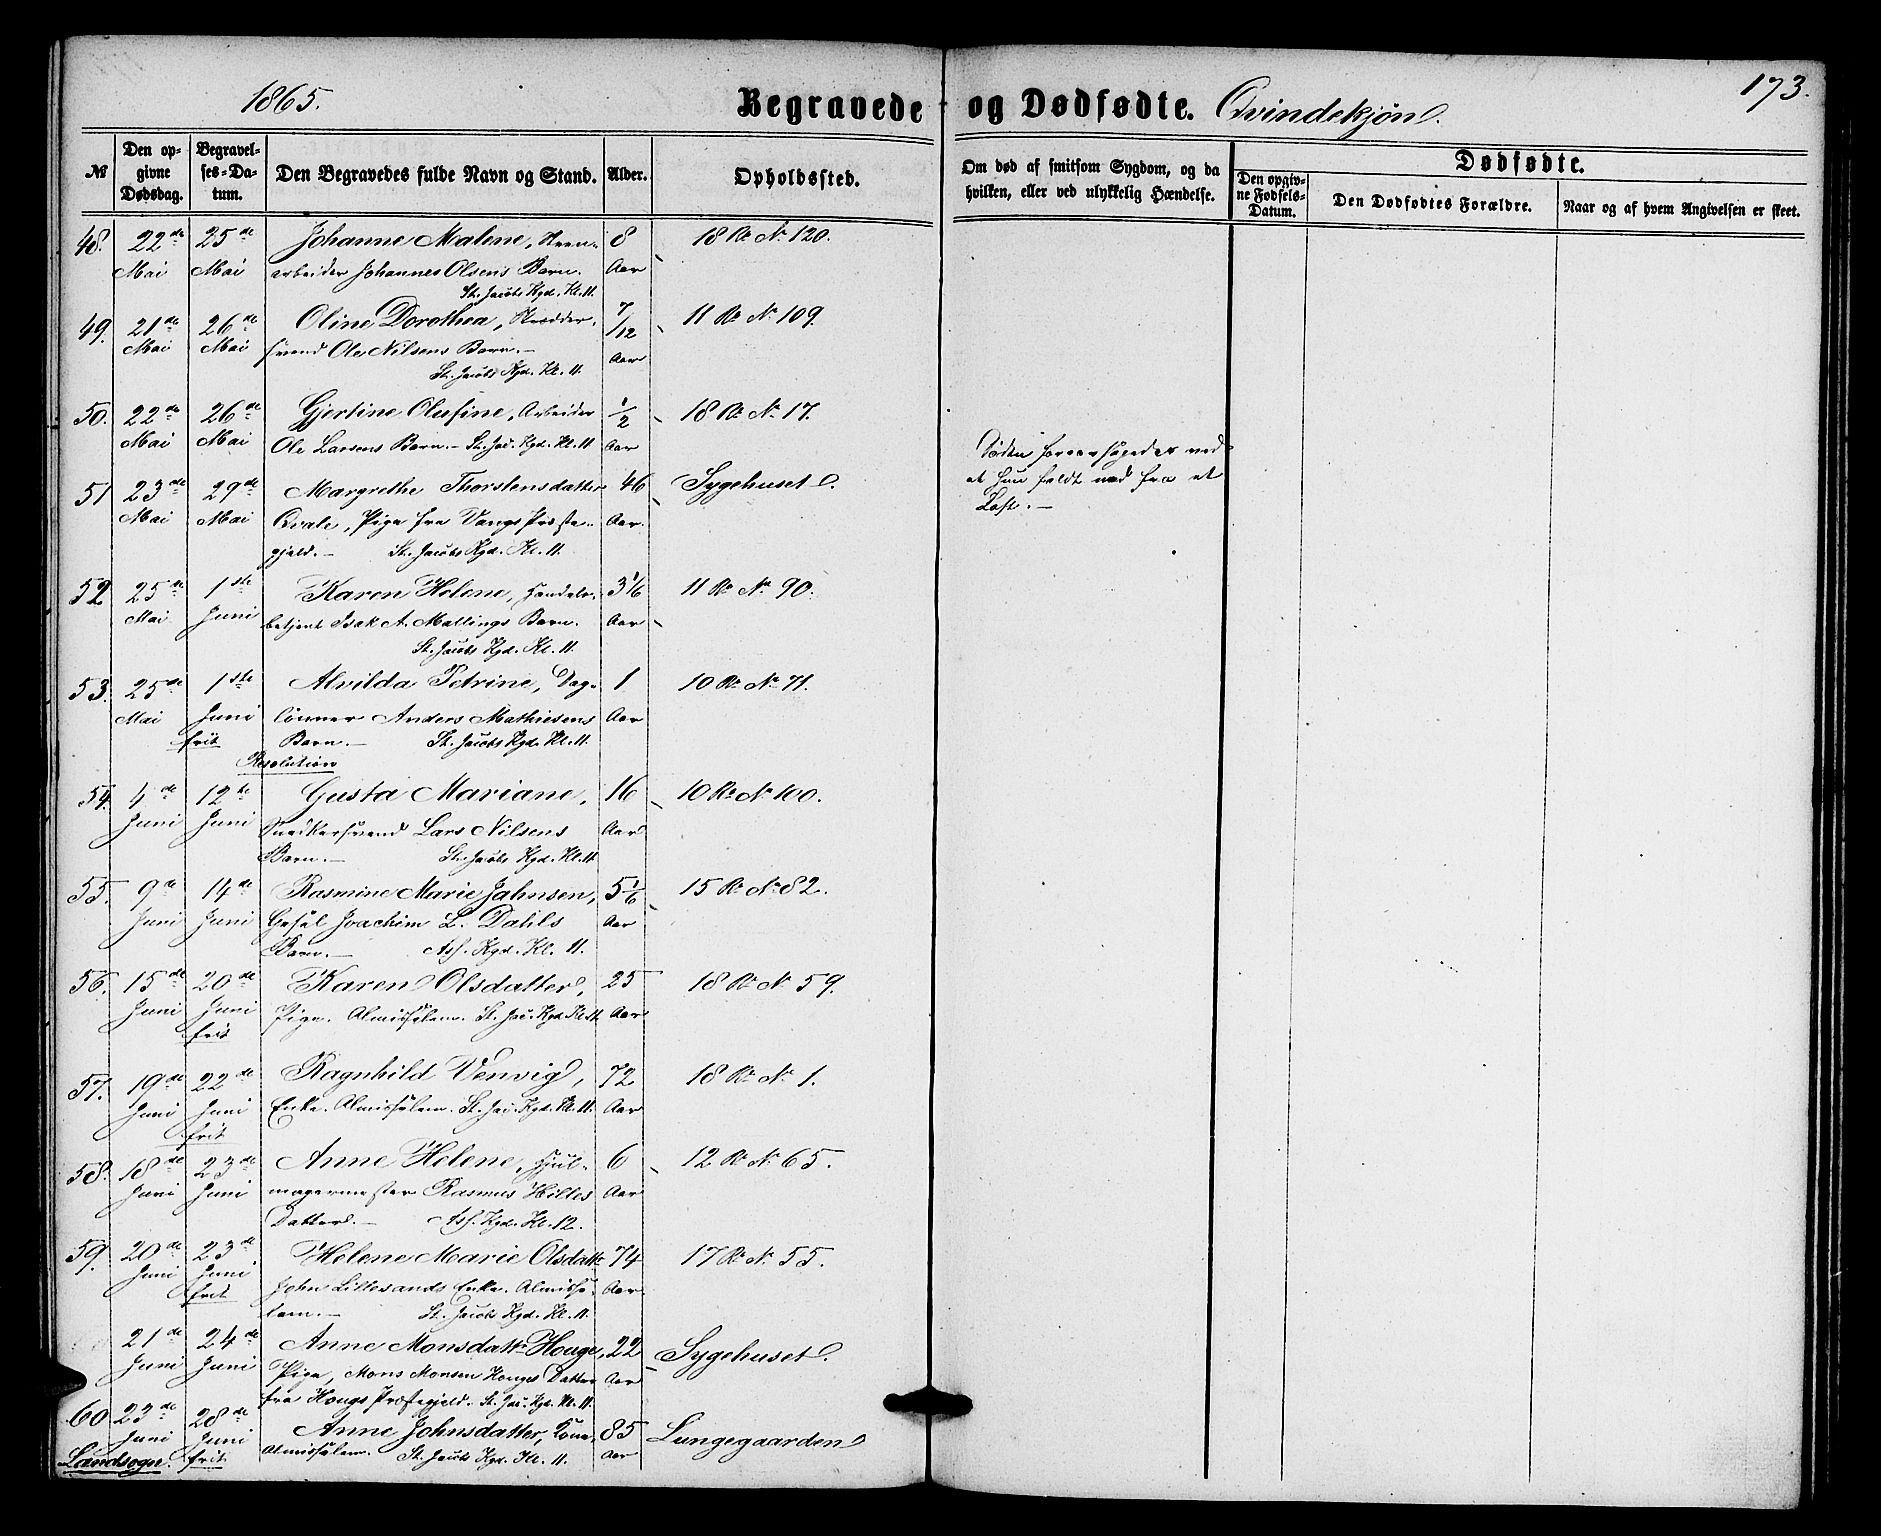 1865.
Begravede og Dødfødte. Qvindekjøn.
173.
№
Den opgivne Dødsdag.
Begravelses-Datum.
Den Begravedes fulde Navn og Stand.
Alder.
Opholdssted.
Om død af smitsom Sygdom, og da hvilken, eller ved ulykkelig Hændelse.
Dødfødte.
Den opgivne Fødsels-Datum.
Den Dødfødtes Forældre.
Naar og af hvem Angivelsen er skeet.
48. 22de 25de Johanne Malene, 8 18 Re No 120.
Mai Mai arbeider Johannes Olsens Barn. Aar
St. Jacobs Kgd. Kl. 11.
49. 21de 26de Oline Dorothea, Skrædder- 7/12 11 Re No 109.
Mai Mai svend Ole Nilsens Barn.- Aar
St. Jacobs Kgd. Kl. 11.
50. 22de 26de Gjertine Olufine, Arbeider 1/2 18 Re No 17.
Mai Mai Ole Larsens Barn.- St. Jac. Kgd. Kl. 11 Aar
51 23de 29de Margrethe Thorstensdatter 46 Sygehuset. Døden foraarsagedes ved
Mai Mai Qvale, Pige fra Vangs Præste- Aar. at hun faldt ned fra et
gjeld.- St. Jacobs Kgd. Kl. 11. Loft.-
52 25de 1ste Karen Helene, Handels- 3 1/6 11 Re No 90.
Mai Juni betjent Isak A. Mallings Barn. Aar
St. Jacobs Kgd. Kl. 11.
53. 25de 1ste Alvilda Petrine, Dag- 1 10 Re No 71.
Mai Juni lønner Anders Mathiesens Aar
frit Barn.- St. Jacobs Kgd. Kl. 11.
Resolution
54. 4de 12te Gusta Mariane, 16 10 Re No 100.
Juni Juni Snedkersvend Lars Nilsens Aar
Barn.- St. Jacobs Kgd. Kl. 11
55. 9de 14de Rasmine Marie Jahnsen, 5 1/6 15 Re No 82.
Juni Juni Joachim L. Dahls Aar
Barn.- Ass. Kgd. Kl. 11.
56. 15de 20de Karen Olsdatter, 25 18 Re No 59.
Juni Juni Pige. Almisselem. St. Jac. Kgd. Kl. 11. Aar
frit
57. 19de 22de Ragnhild Venvig, 72 18 Re No 1.
Juni Juni Enke. Almisselem. St. Jac. Kgd. Kl. 11. Aar
frit
58. 18de 23de Anne Helene, Hjul- 6 12 Re No 65.
Juni Juni magermester Rasmus Hiltes Aar
Datter.- Ass. Kgd. Kl. 12.
59. 20de 23de Helene Marie Olsdattr 74 17 Re No 55.
Juni Juni John Lillesands Enke. Almisse- Aar
frit lem.- St. Jacobs Kgd. Kl. 11.
21de 24de Anne Monsdattr Houge, 22 Sygehuset.
Juni Juni Pige, Mons Monsen Houges Datter Aar
fra Hougs Præstegjeld. St. Jac. Kgd. Kl. 11.
60 23de 28de Anne Johnsdatter, Kone, 85 Lungegaarden
Juni Juni Almisselem. St. Jacobs Kgd. Kl. 11. Aar
Landsogn. frit